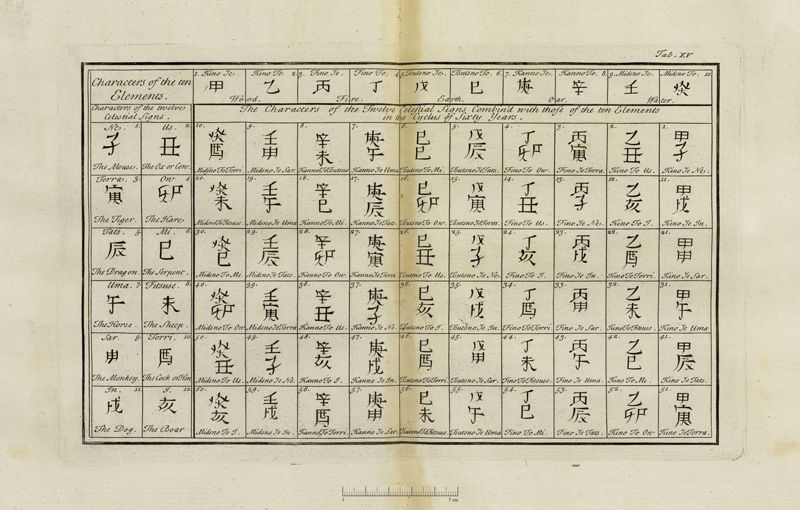 Tab. XV
Characters of the ten
Elements.
1. Kino Je. Kino To. 2. 3. Fino Je. Fino To. 4. 5. Tsutsno Je. Tsutsno To. 6. 7. Kanno Je. Kanno To. 8. 9. Midsno Je. Midsno To. 10.
甲 乙 丙 丁 戊 巳 庚 辛 壬 癸
Wood. Fire. Earth. Oar. Water.
Characters of the twelve
Celestial Signs.
The Characters of the Twelve Celestial Signs, Combin'd with those of the ten Elements
in the Cyclus of Sixty Years.
Ne. 1. Us. 2. 10. 9. 8. 7. 6. 5. 4. 3. 2. 1.
子 丑 癸酉 壬申 辛未 庚午 巳巳 戊辰 丁卯 丙寅 乙丑 甲子
The Mouse. The Ox or Cow. Midsno To Torri. Midsno Je Sar. Kanno Je Uma. Fino To Ow. Fino Je Torra. Kino To Us. Kino Je Ne.
Torra. 3. Ow. 4. 20. 19. 18. 17. 16. 15. 14. 13. 12. 11.
寅 卯 癸未 壬午 辛巳 庚辰 巳卯 戊寅 丁丑 丙子 乙亥 甲戌
The Tiger. The Hare. Midsno Je Uma. Kanno To Mi. Kanno Je Tats. Fino To Us. Fino Je Ne. Kino To I. Kino Je In.
Tats. 5. Mi. 6. 30. 29. 28. 27. 26. 25. 24. 23. 22. 21.
辰 巳 癸巳 壬辰 辛卯 庚寅 巳丑 戊子 丁亥 丙戌 乙酉 甲申
The Dragon. The Serpent. Midsno To Mi. Midsno Je Tats. Kanno To Ow. Kanno Je Torra. Fino To I. Fino Je In. Kino To Torri. Kino Je Sar.
Uma. 7. Fitsuse. 8. 40. 39. 38. 37. 36. 35. 34. 33. 32. 31.
午 未 癸卯 壬寅 辛丑 庚子 巳亥 戊戌 丁酉 丙申 乙未 甲午
The Horse. The Sheep. Midsno To Ow. Midsno Je Torra. Kanno To Us. Kanno Je Ne. Fino To Torri. Fino Je Sar. Kino Je Uma.
Sar. 9. Torri. 10. 50. 49. 48. 47. 46. 45. 44. 43. 42. 41.
申 酉 癸丑 壬子 辛亥 庚戌 巳酉 戊申 丁未 丙午 乙巳 甲辰
The Monkey. The Cock or Hen. Midsno To Us. Midsno Je Ne. Kanno To I. Kanno Je In. Fino To Fitsuse. Fino Je Uma. Kino To Mi. Kino Je Tats.
In. 11. I. 12. 60. 59. 58. 57. 56. 55. 54. 53. 52. 51.
戌 亥 癸亥 壬戌 辛酉 庚申 巳未 戊午 丁巳 丙辰 乙卯 甲寅
The Dog. The Boar. Midsno To I. Midsno Je In. Kanno To Torri. Kanno Je Sar. Fino To Mi. Fino Je Tats. Kino To Ow. Kino Je Torra.